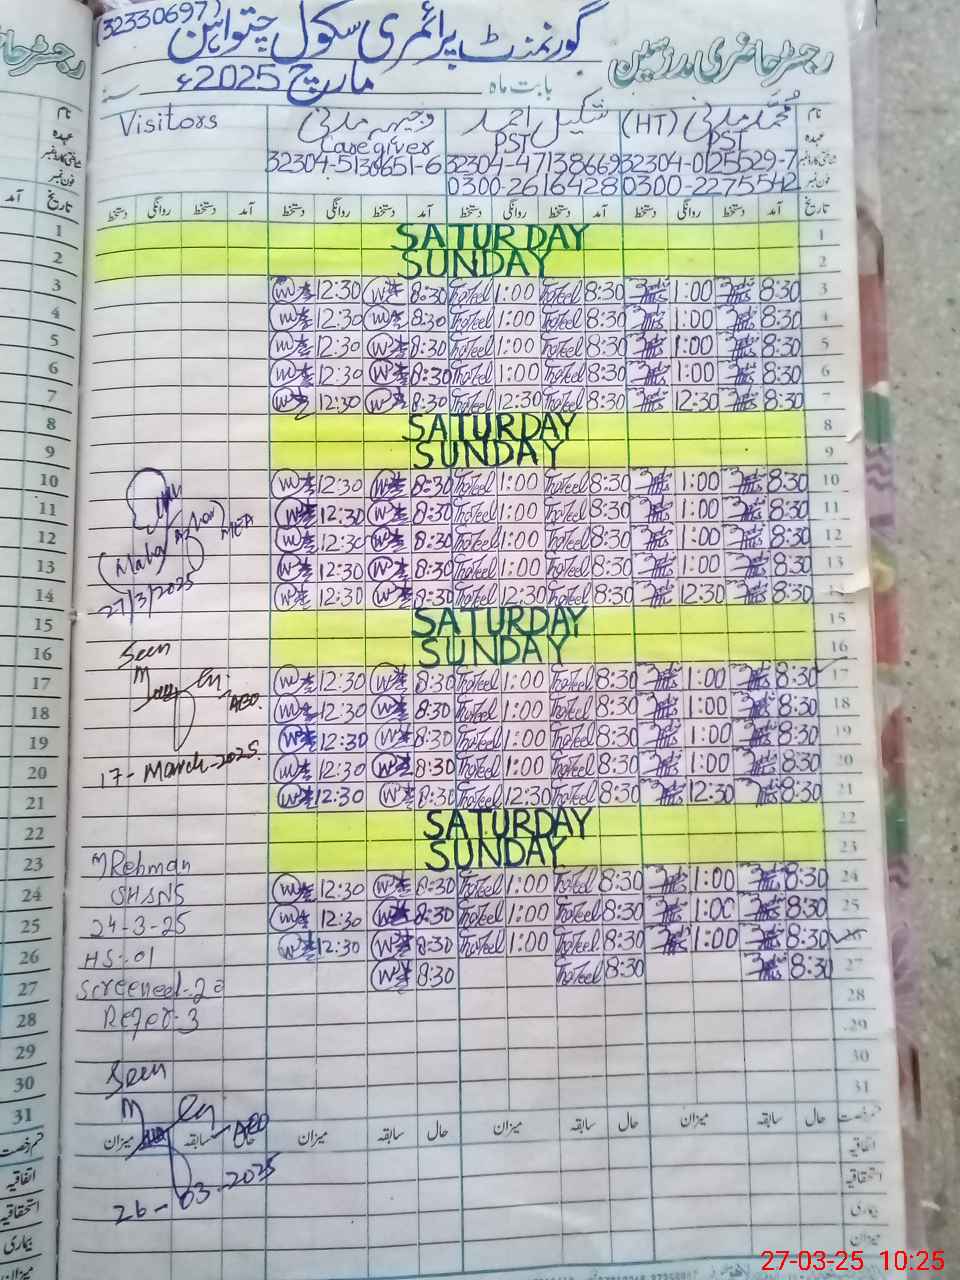 (32330697) گورنمنٹ پرائمری سکول چتواہن
رجسٹر حاضری مدرسین
بابت ماہ مارچ 2025ء
نام محمد مدنی (HT) شکیل احمد وجیہہ مدنی Visitors
عہدہ PST PST Care giver
32304-0125529-7 32304-47138669 32304-5138651-6
فون نمبر 0300-2275542 0300-2616428
تاریخ آمد دستخط روانگی دستخط آمد دستخط روانگی دستخط آمد دستخط روانگی دستخط آمد دستخط روانگی دستخط
1 SATURDAY 1
2 SUNDAY 2
3 12:30 8:30 1:00 8:30 1:00 8:30 3
4 12:30 8:30 1:00 8:30 1:00 8:30 4
5 12:30 8:30 1:00 8:30 1:00 8:30 5
6 12:30 8:30 1:00 8:30 1:00 8:30 6
7 12:30 8:30 12:30 8:30 12:30 8:30 7
8 SATURDAY 8
9 SUNDAY 9
10 12:30 8:30 1:00 8:30 1:00 8:30 10
11 12:30 8:30 1:00 8:30 1:00 8:30 11
12 MEA 12:30 8:30 1:00 8:30 1:00 8:30 12
13 12:30 8:30 1:00 8:30 1:00 8:30 13
14 27/3/2025 12:30 8:30 12:30 8:30 12:30 8:30 14
15 SATURDAY 15
16 Seen SUNDAY 16
17 12:30 8:30 1:00 8:30 1:00 8:30 17
18 AEO 12:30 8:30 1:00 8:30 1:00 8:30 18
19 12:30 8:30 1:00 8:30 1:00 8:30 19
20 17-March-2025 12:30 8:30 1:00 8:30 1:00 8:30 20
21 12:30 8:30 12:30 8:30 12:30 8:30 21
22 SATURDAY 22
23 M Rehman SUNDAY 23
24 SH&NS 12:30 8:30 1:00 8:30 1:00 8:30 24
25 24-3-25 12:30 8:30 1:00 8:30 1:00 8:30 25
26 HS-01 12:30 8:30 1:00 8:30 1:00 8:30 26
27 Screened-20 8:30 8:30 8:30 27
28 Refer-3 28
29 29
30 Seen 30
31 31
قسم رخصت حال سابقہ میزان حال سابقہ میزان حال سابقہ میزان حال سابقہ میزان
AEO
اتفاقیہ
استحقاقیہ
26-03-2025
بیماری
میزان
27-03-25 10:25